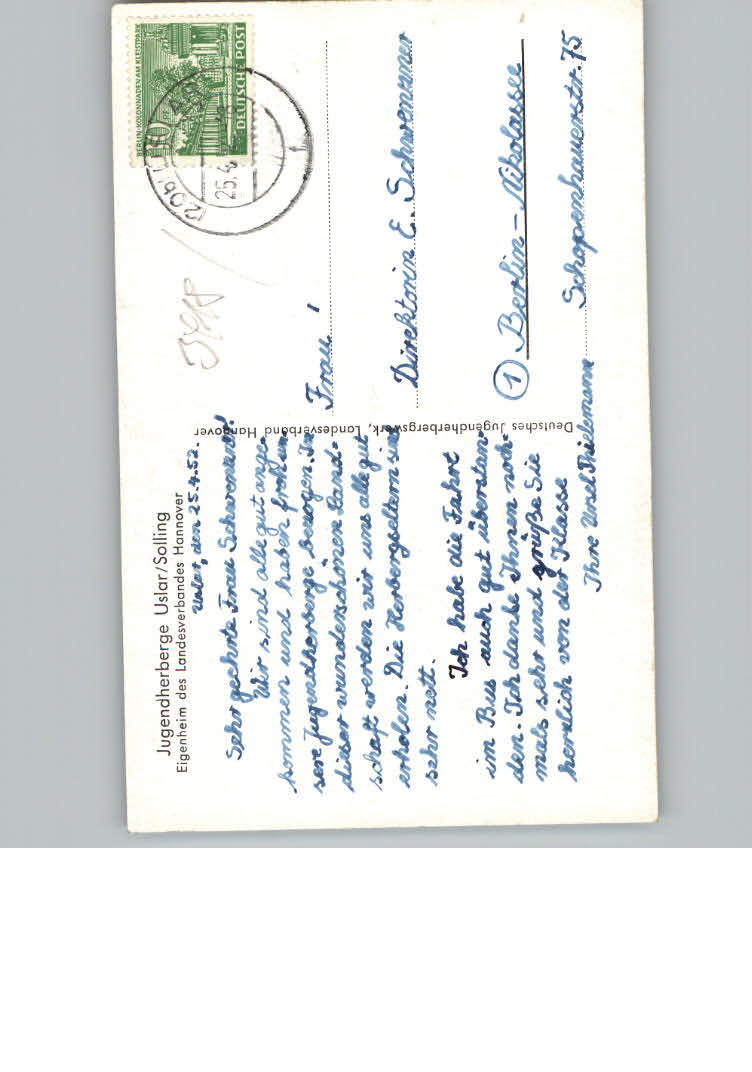 Jugendherberge Uslar/Solling
Eigenheim des Landesverbandes Hannover
Uslar, den 25.4.52.
Sehr geehrte Frau Schwemmer!
Wir sind alle gut ange-
kommen und haben frohen
sere Jugendherberge bezogen. In
dieser wunderschönen Land-
schaft werden wir uns alle gut
erholen. Die Herbergseltern sind
sehr nett.
Ich habe die Fahrt
im Bus auch gut überstan-
den. Ich danke Ihnen noch-
mals sehr und grüße Sie
herzlich von der Klasse
Ihre Ursel Thielemann
Deutsches Jugendherbergswerk, Landesverband Hannover
BERLIN-KOLONNADEN AM KLEISTPARK
10
DEUTSCHE POST
(20b)
25.4
Frau
Direktorin E. Schwemmer
(1) Berlin-Nikolassee
Schopenhauerstr. 75